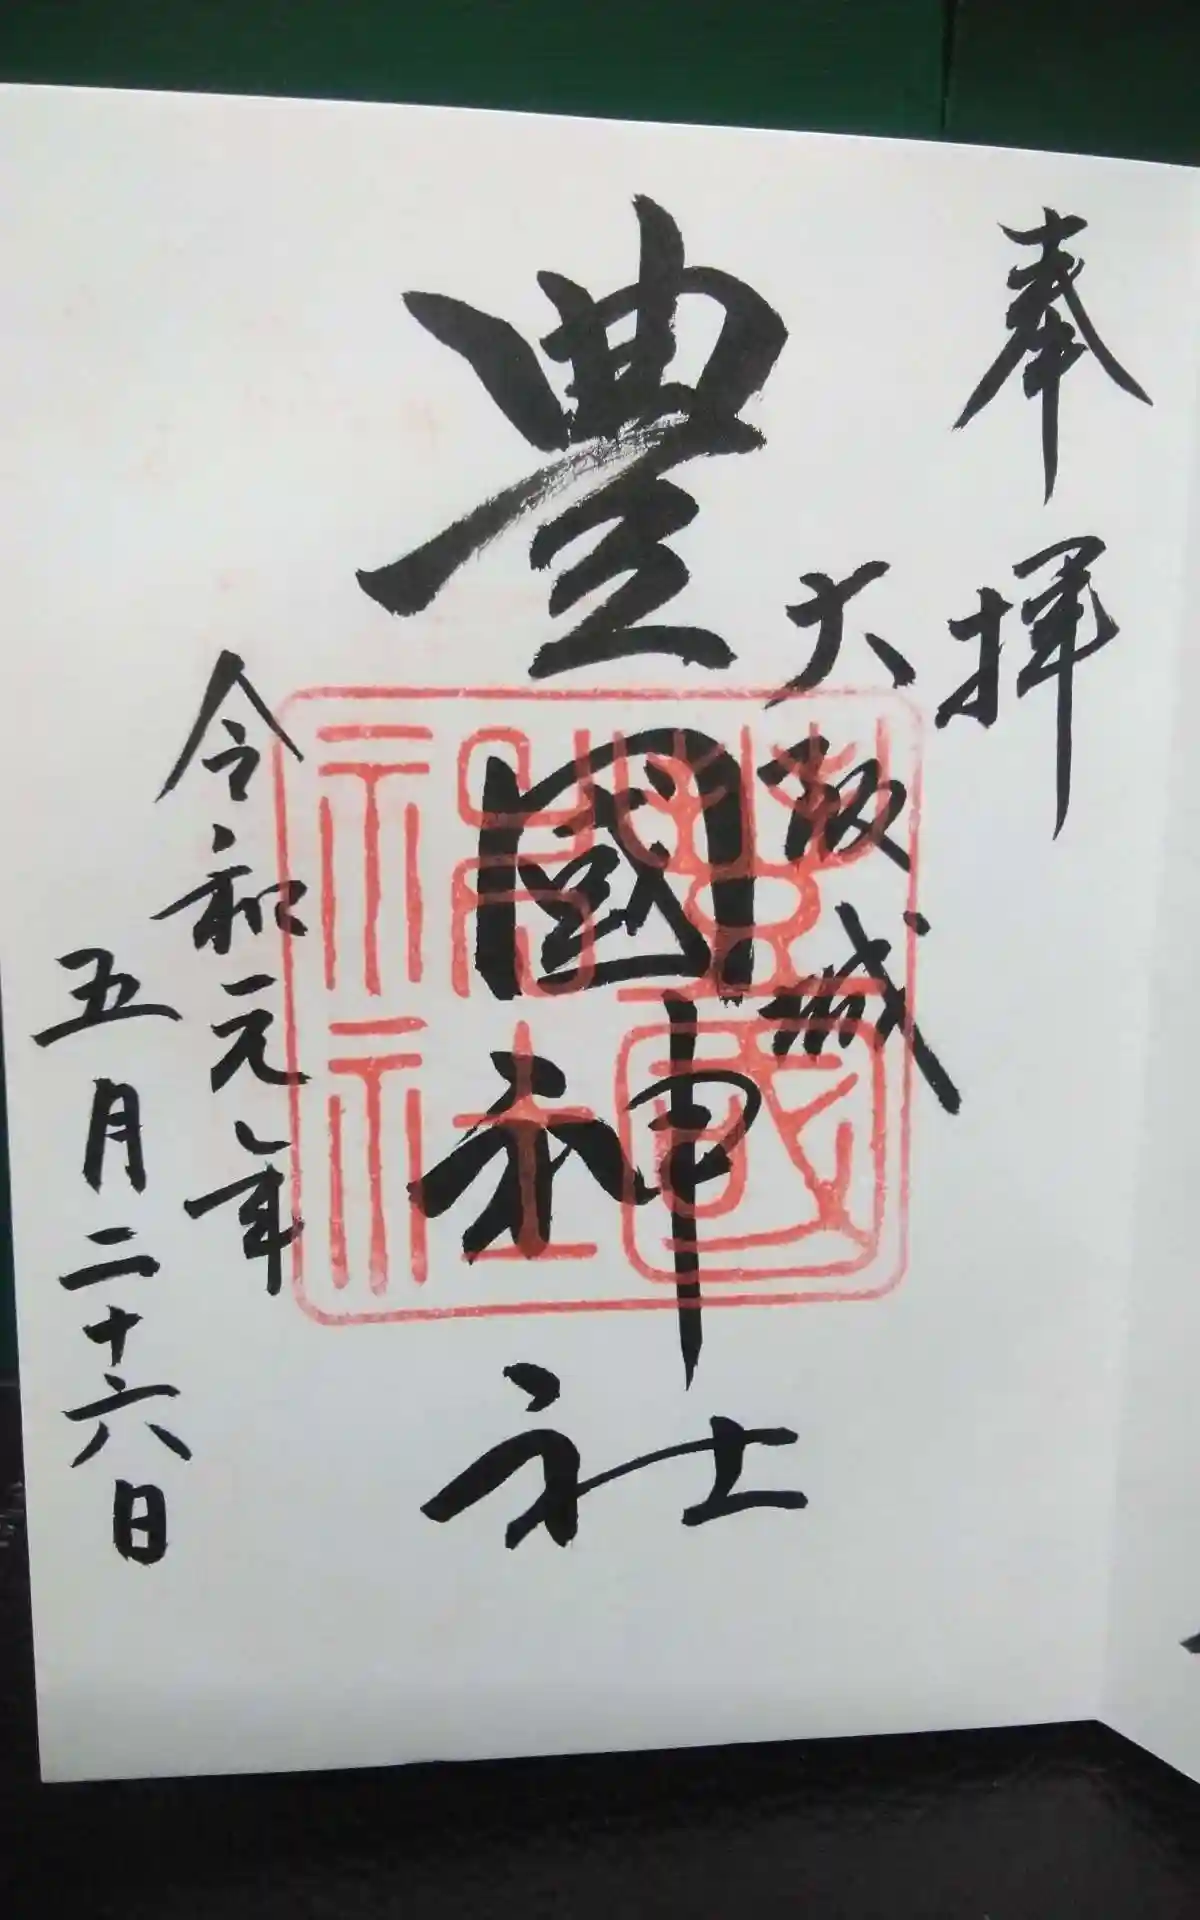 奉拝
大阪城
豊國神社
令和元年
五月二十六日
豊國
神社